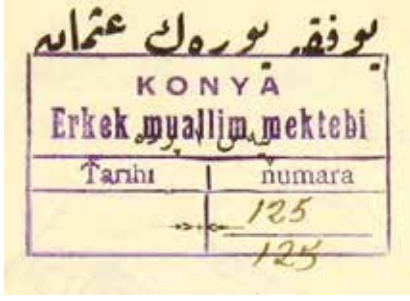 يوفقه يورەك عثمان
KONYA
Erkek muallim mektebi
Tarihi numara
125
125